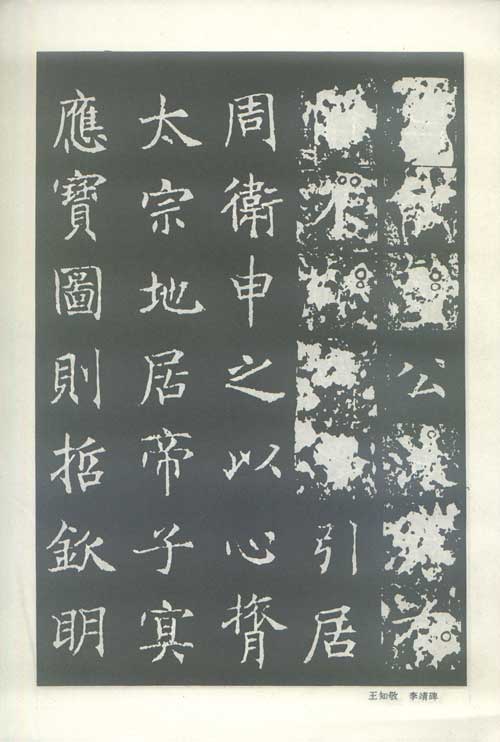 公
不引居
周衛申之以心膂
太宗地居帝子寅
應寶圖則哲欽明
王知敬 李靖碑